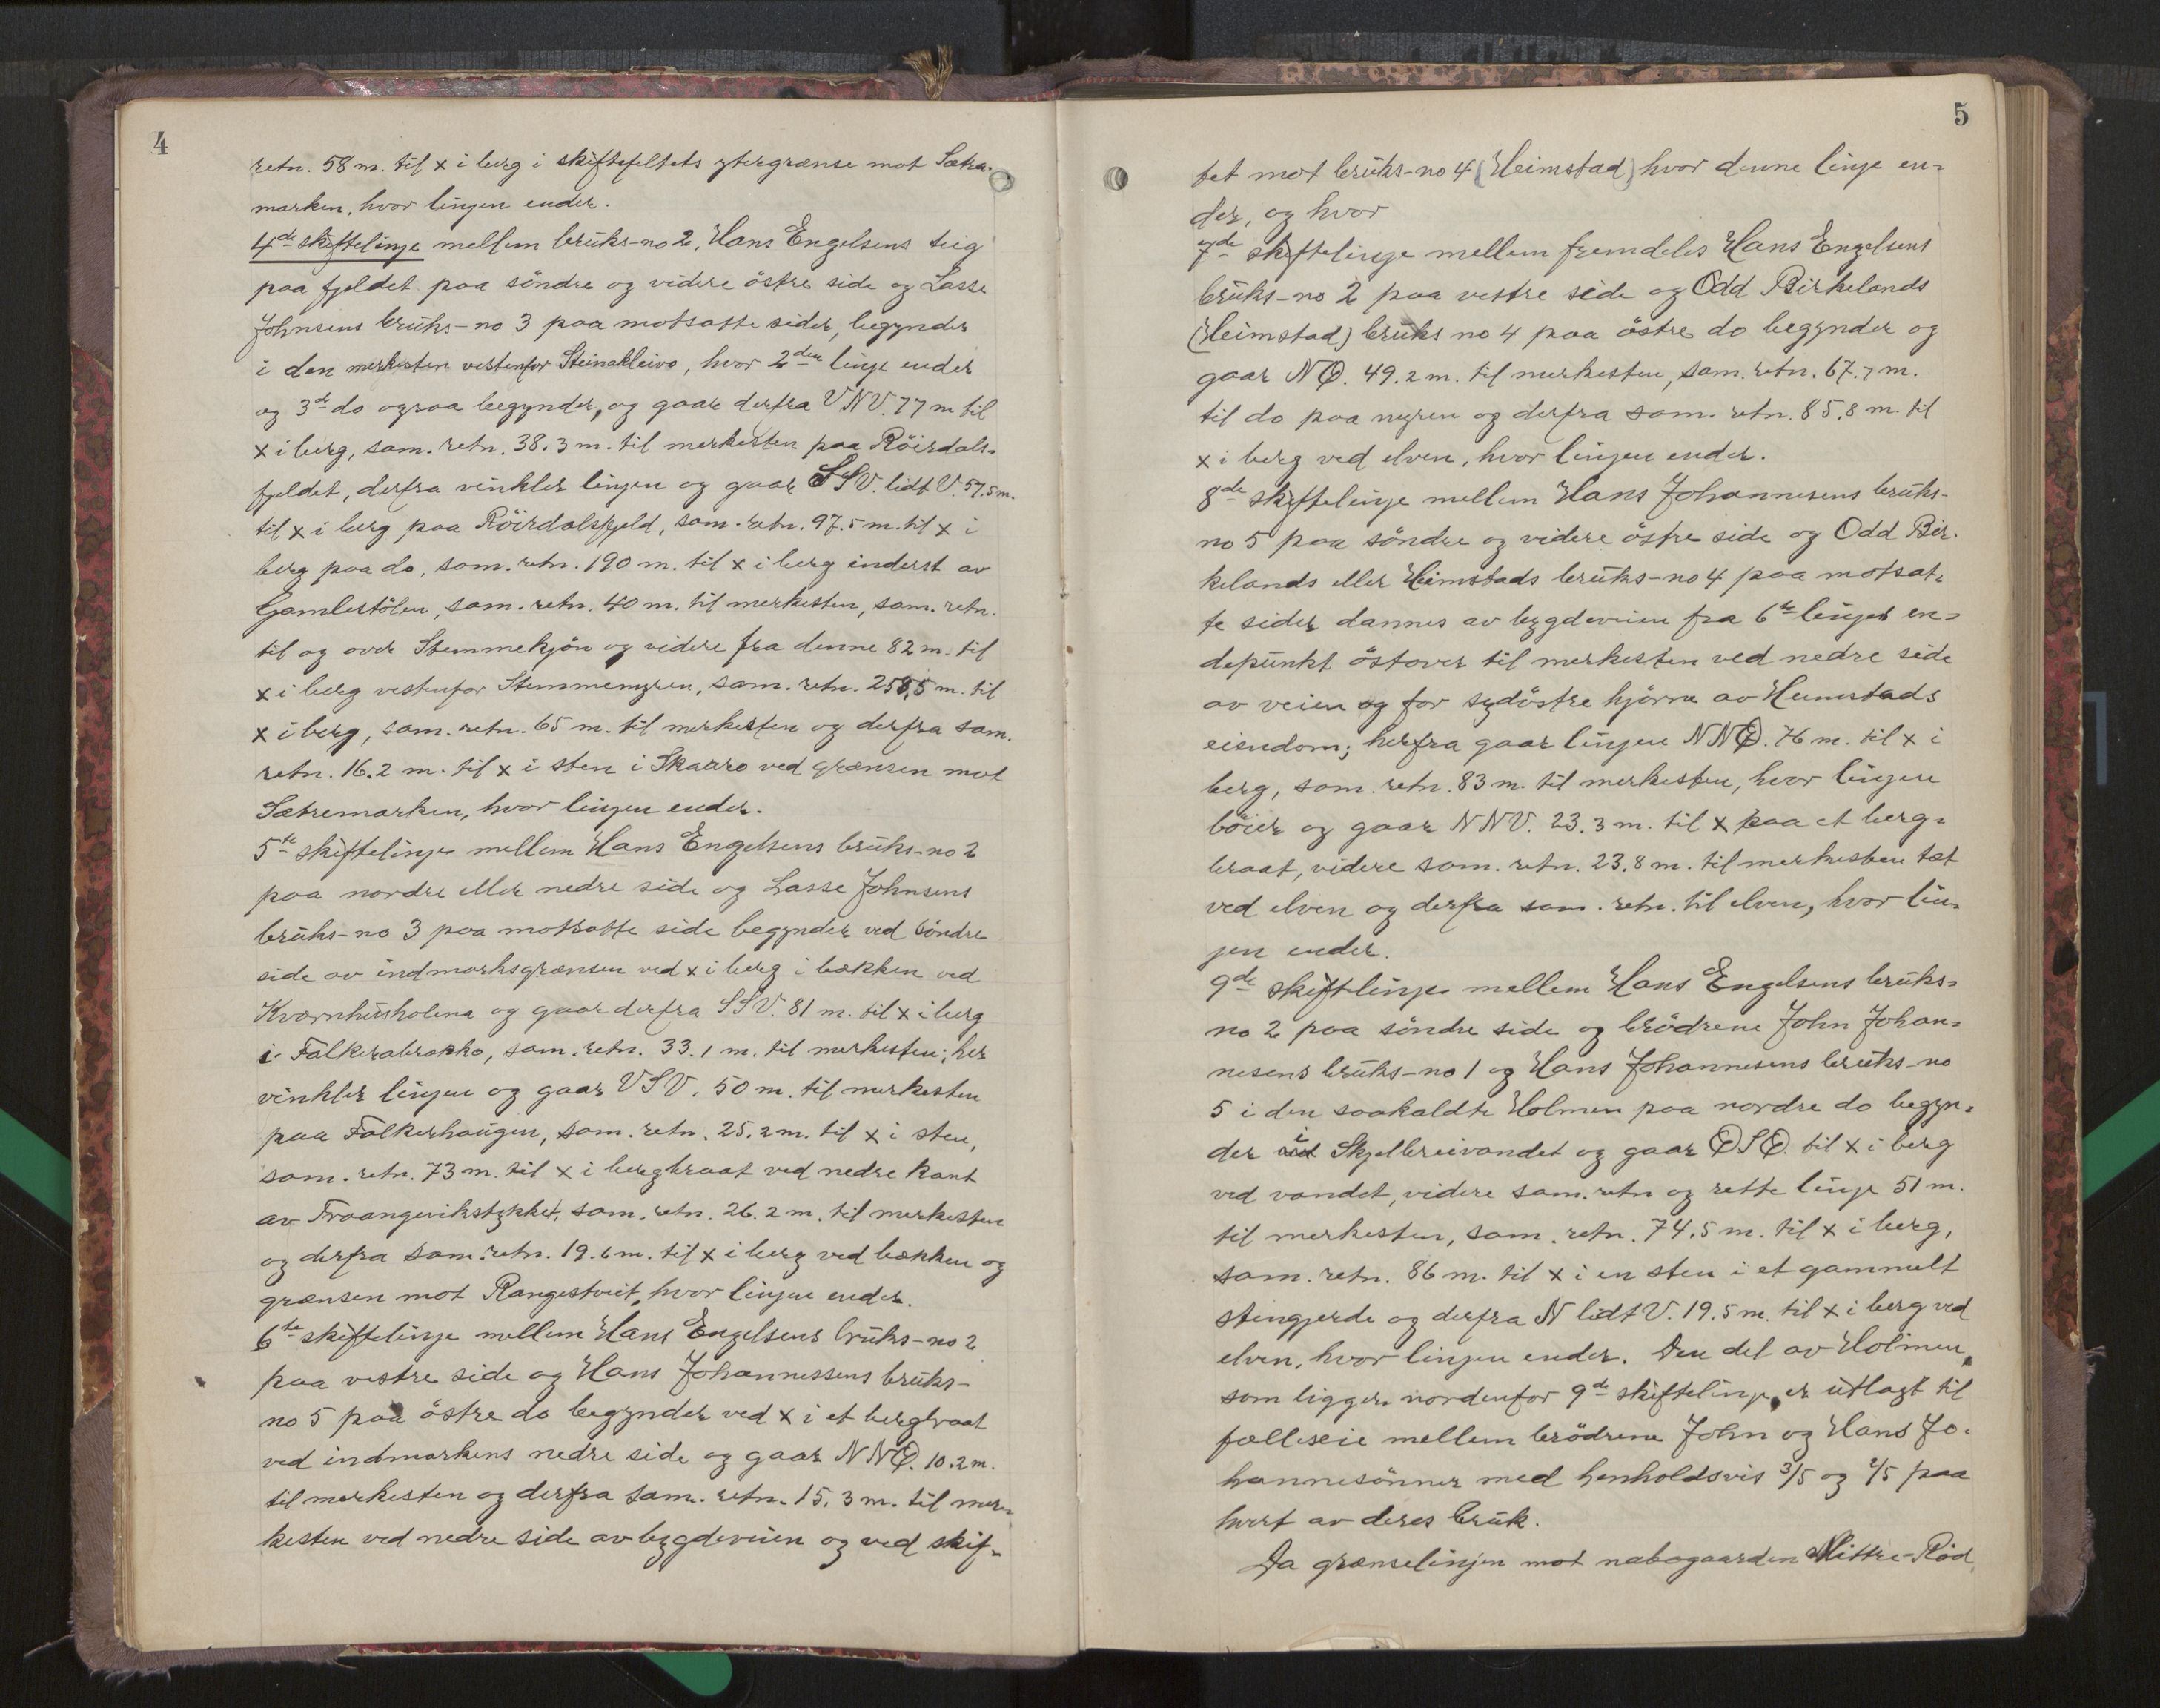 4
retn. 58 m. til x i berg i skiftefeltets ytergrænse mot Sætra-
marken, hvor linjen ender.
4de skiftelinje mellem bruks-no 2, Hans Engelsens teig
paa fjeldet paa söndre og videre östre side og Lasse
Johnsens bruks-no 3 paa motsatte sider, begynder
i den merkesten vestenfor Steinakleivo, hvor 2den linje ender
og 3de do ogsaa begynder, og gaar derfra VNV. 77 m til
x i berg, sam. retn. 38.3 m. til merkesten paa Röirdals-
fjeldet, derfra vinkler linjen og gaar SSV. lidt V. 57.5 m.
til x i berg paa Röirdalsfjeld, sam. retn. 97.5 m. til x i
berg paa do, sam. retn. 190 m. til x i berg inderst av
Gamlestölen, sam. retn. 40 m. til merkesten, sam. retn.
til og over Stemmekjön og videre fra denne 82 m. til
x i berg vestenfor Stemmemyren, sam. retn. 258,5 m. til
x i berg, sam. retn. 65 m. til merkesten og derfra sam.
retn. 16.2 m. til x i sten i Skaaro ved grænsen mot
Sætremarken, hvor linjen ender.
5te skiftelinje mellem Hans Engelsens bruks-no 2
paa nordre eller nedre side og Lasse Johnsens
bruks-no 3 paa motsatte side begynder ved söndre
side av indmarksgrænsen ved x i berg i bækken ved
Kvernhusholena og gaar derfra SSV. 81 m. til x i berg
i Falkerabrakko, sam. retn. 33.1 m. til merkesten; her
vinkler linjen og gaar VSV. 50 m. til merkesten
paa Falkerhaugen, sam. retn. 25.2 m. til x i sten,
sam. retn. 73 m. til x i bergbraat ved nedre kant
av Traangevikstykket, sam. retn. 26.2 m. til merkesten
og derfra sam. retn. 19.6 m. til x i berg ved bækken og
grænsen mot Rangestveit, hvor linjen ender.
6te skiftelinje mellem Hans Engelsens bruks-no 2
paa vestre side og Hans Johannessens bruks-
no 5 paa östre do begynder ved x i et bergbraat
ved indmarkens nedre side og gaar NNØ. 10.2 m.
til merkesten og derfra sam. retn. 15.3 m. til mer-
kesten ved nedre side av bygdeveien og ved skif-
5
tet mot bruks-no 4 (Heimstad) hvor denne linje en-
der, og hvor
7de skiftelinje mellem fremdeles Hans Engelsens
bruks-no 2 paa vestre side og Odd Birkelands
(Heimstad) bruks no 4 paa östre do begynder og
gaar NØ. 49.2 m. til merkesten, sam. retn. 67.7 m.
til do paa myren og derfra sam. retn. 85.8 m. til
x i berg ved elven, hvor linjen ender.
8de skiftelinje mellem Hans Johannesens bruks-
no 5 paa söndre og videre östre side og Odd Bir-
kelands eller Heimstads bruks-no 4 paa motsat-
te sider dannes av bygdeveien fra 6te linjes en-
depunkt östover til merkesten ved nedre side
av veien og for sydöstre hjörne av Heimstads
eiendom; herfra gaar linjen NNØ. 76 m. til x i
berg, sam. retn. 83 m. til merkesten, hvor linjen
böier og gaar NNV. 23.3 m. til x paa et berg-
braat, videre sam. retn. 23.8 m. til merkesten tæt
ved elven og derfra sam. retn. til elven, hvor lin-
jen ender.
9de skiftlinje mellem Hans Engelsens bruks-
no 2 paa söndre side og brödrene John Johan-
nesens bruks-no 1 og Hans Johannesens bruks-no
5 i den saakaldte Holmen paa nordre do begyn-
der i Skjelbreivandet og gaar ØSØ. til x i berg
ved vandet, videre sam. retn og rette linje 51 m.
til merkesten, sam. retn. 74.5 m. til x i berg,
sam. retn. 86 m. til x i en sten i et gammelt
stengjerde og derfra N lidt V. 19.5 m. til x i berg ved
elven, hvor linjen ender. Den del av Holmen,
som ligger nordenfor 9de skiftelinje, er utlagt til
fælleseie mellem brödrene John og Hans Jo-
hannesönner med henholdsvis 3/5 og 2/5 paa
hvert av deres bruk.
Da grænselinjen mot nabogaarden Mittre-Röd